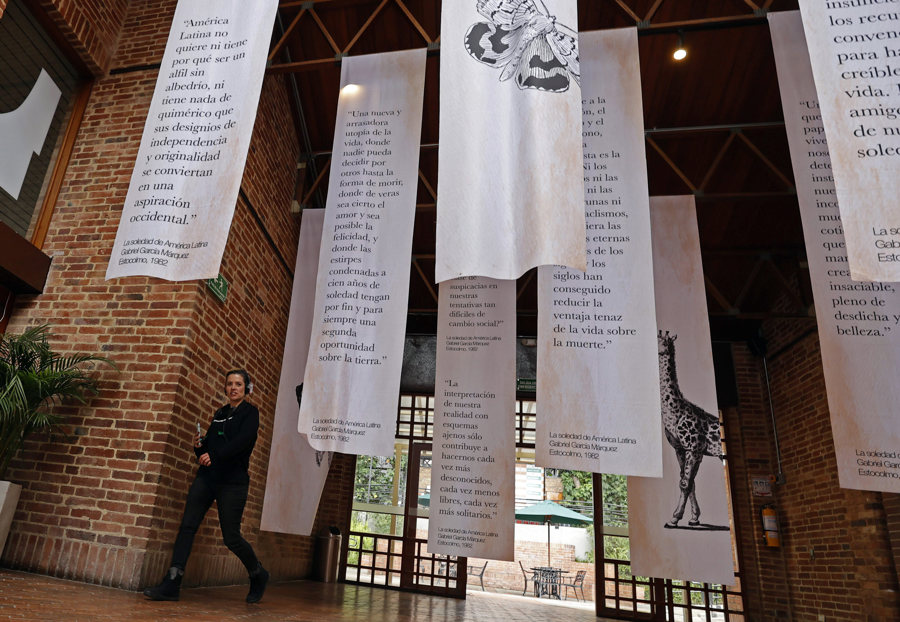 “América
Latina no
quiere ni tiene
por qué ser un
alfil sin
albedrío, ni
tiene nada de
quimérico que
sus designios de
independencia
y originalidad
se conviertan
en una
aspiración
occidental.”
La soledad de América Latina
Gabriel García Márquez
Estocolmo, 1982
“Una nueva y
arrasadora
utopía de la
vida, donde
nadie pueda
decidir por
otros hasta la
forma de morir,
donde de veras
sea cierto el
amor y sea
posible la
felicidad, y
donde las
estirpes
condenadas a
cien años de
soledad tengan
por fin y para
siempre una
segunda
oportunidad
sobre la tierra.”
La soledad de América Latina
Gabriel García Márquez
Estocolmo, 1982
suspicacias en
nuestras
tentativas tan
difíciles de
cambio social?”
La soledad de América Latina
Gabriel García Márquez
Estocolmo, 1982
“La
interpretación
de nuestra
realidad con
esquemas
ajenos sólo
contribuye a
hacernos cada
vez más
desconocidos,
cada vez menos
libres, cada vez
más solitarios.”
La soledad de América Latina
Gabriel García Márquez
Estocolmo, 1982
e a la
ón, el
o y el
ono,
ta es la
Ni los
os ni las
ni las
unas ni
aclismos,
iera las
s eternas
y los
siglos han
conseguido
reducir la
ventaja tenaz
de la vida sobre
la muerte.”
La soledad de América Latina
Gabriel García Márquez
Estocolmo, 1982
“Un
que
pap
vive
nos
det
inst
cot
mue
sust
insaciable,
pleno de
desdicha y
belleza.”
La soledad de América Latina
Gabriel García Márquez
Estocolmo, 1982
insuficien
los recu
conven
para ha
creíble
vida.
amig
de nu
soled
La so
Gabr
Esto